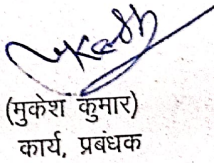 (मुकेश कुमार)
कार्य, प्रबंधक